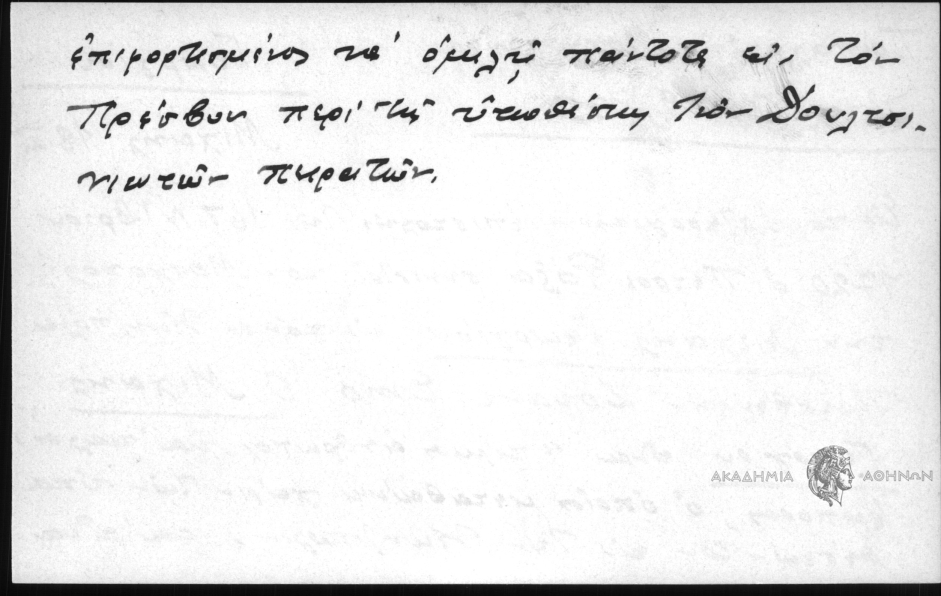 ἐπιφορτισμένος νά ὁμιλῇ πάντοτε εἰς τόν
Πρέσβυν περί τῆς ὑποθέσεως τῶν Δουλτσι-
νιωτῶν πειρατῶν.
ΑΚΑΔΗΜΙΑ ΑΘΗΝΩΝ